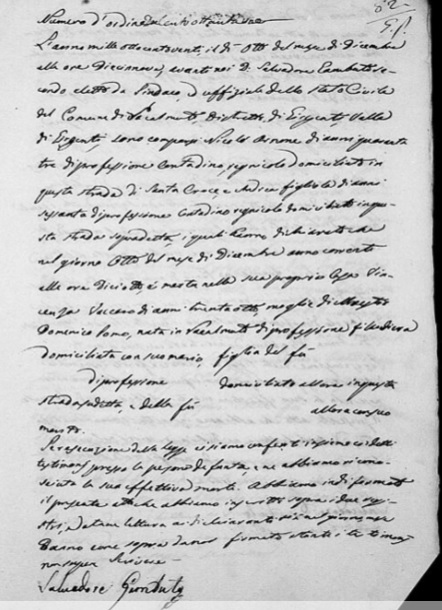 Numero d'ordine
L'anno mille ottocentoventi, il dì Otto del mese di Dicembre
alle ore Diecinove, avanti noi D. Salvadore
condo eletto da Sindaco, d'uffiziale dello Stato Civile
del Comune di Distretto, di Girgenti Valle
di Girgenti, sono comparsi Nicolò Arnone di anni quaranta
tre di professione Contadino, regnicolo domiciliato in
questa strada di Santa Croce, e Andrea figliola di anni
sessanta di professione Contadino regnicolo domiciliato in que-
sta strada sopradetta, i quali hanno dichiarato che
nel giorno Otto del mese di Dicembre anno corrente
alle ore Dieciotto, è morta nella sua propria Casa Vin-
cenza Vaccaro di anni trenta otto, moglie di
Domenico nata in di professione filandiera
domiciliata con suo marito, figlia del fù
di professione domiciliato allora in questa
strada sudetta, e della fù allora con suo
marito.
Per esecuzione della legge ci siamo conferiti insieme coi detti
testimonj presso la persona defunta, e ne abbiamo ricono-
sciuta la sua effettiva morte. Abbiamo indi formato
il presente atto che abbiamo inscritto sopra i due regi-
stri, e datane lettura ai dichiaranti
anno come sopra
non saper scrivere
Salvadore